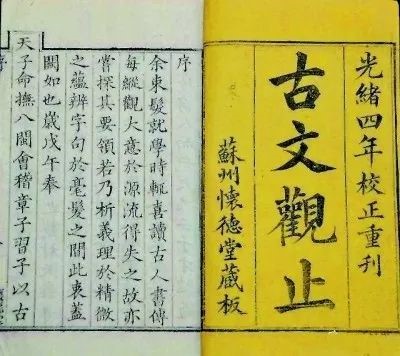 光緒四年校正重刊
古文觀止
蘇州懷德堂藏板
序
余束髮就學時輒喜讀古人書傳
每縱觀大意於源流得失之故亦
嘗探其要領若乃析義理於精微
之蘊辨字句於毫髮之間此衷蓋
闕如也歲戊午奉
天子命撫八閩會稽章子習子以古
序